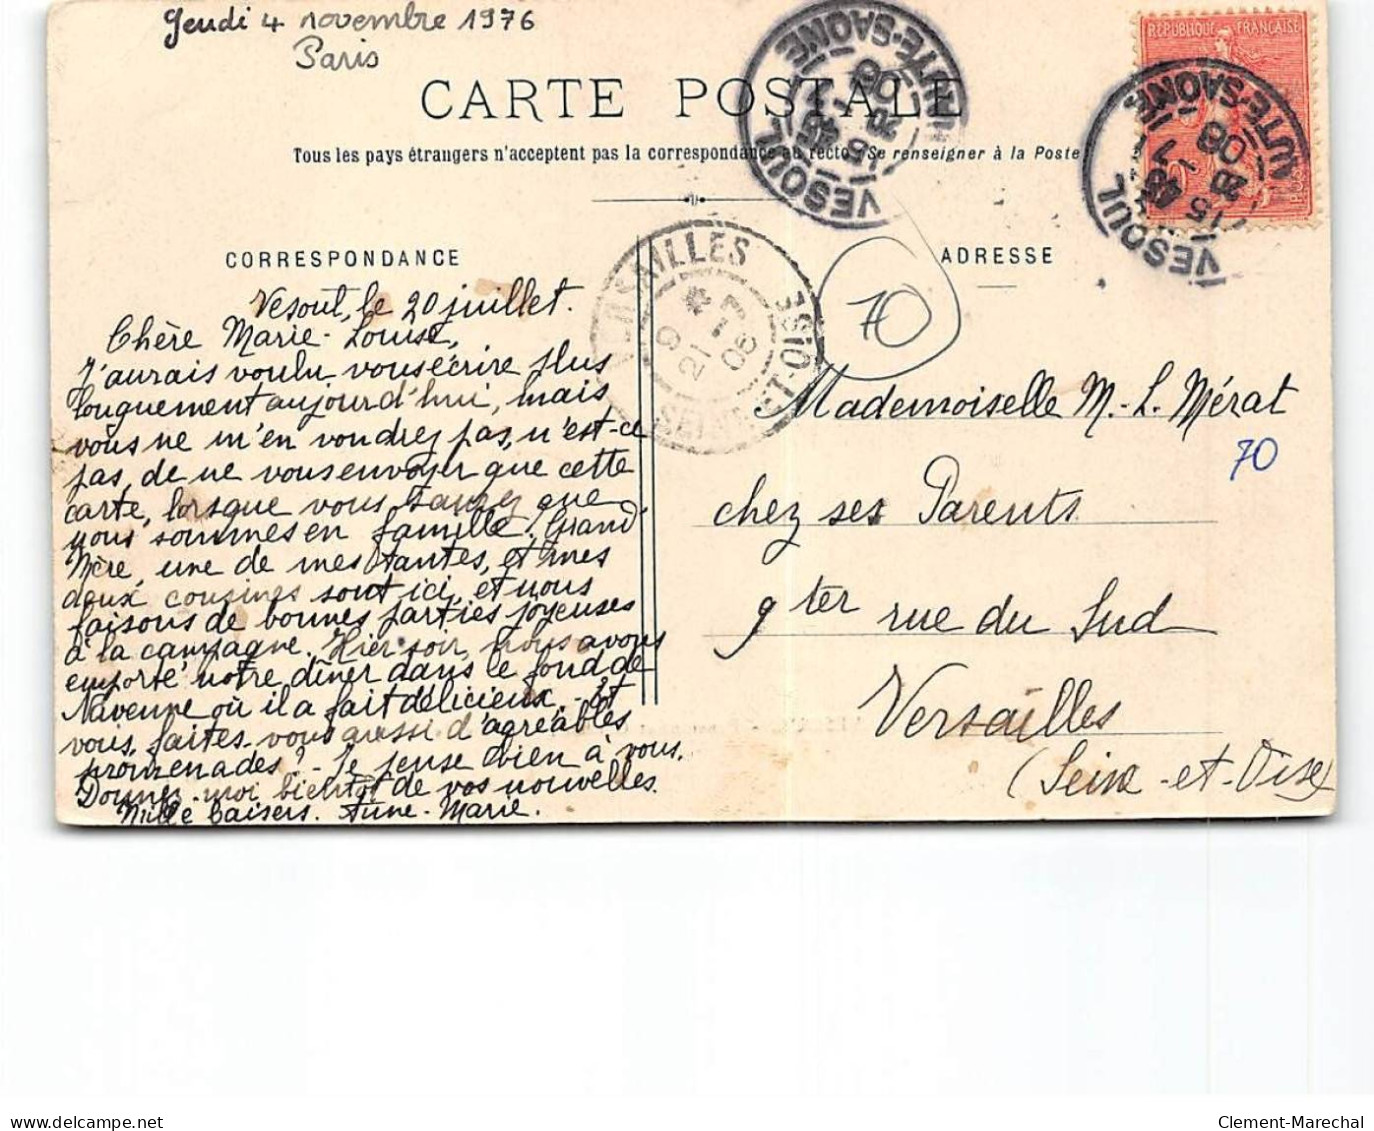 Jeudi 4 novembre 1976
Paris
CARTE POSTALE
Tous les pays étrangers n'acceptent pas la correspondance au recto (Se renseigner à la Poste
RÉPUBLIQUE FRANÇAISE
VESOUL
HAUTE-SAÔNE
15 45
20 7
08
VESOUL
HAUTE-SAÔNE
15 45
20 7
08
VERSAILLES
SEINE-ET-OISE
21 7
08
CORRESPONDANCE
Vesoul, le 20 juillet.
Chère Marie-Louise,
J'aurais voulu vous écrire plus
longuement aujourd'hui, mais
vous ne m'en voudrez pas, n'est-ce
pas, de ne vous envoyer que cette
carte, lorsque vous saurez que
nous sommes en famille. Grand'
Mère, une de mes tantes, et mes
deux cousines sont ici, et nous
faisons de bonnes parties joyeuses
à la campagne. Hier soir, nous avons
emporté notre dîner dans le fond de
Navenne où il a fait délicieux. - Et
vous, faites-vous aussi d'agréables
promenades? - Je pense bien à vous.
Donnez-moi bientôt de vos nouvelles.
Mille baisers. Anne-Marie.
ADRESSE
70
Mademoiselle M.-L. Mérat
70
chez ses Parents
9 ter rue du Sud
Versailles
(Seine-et-Oise)
delcampe.net
Clement-Marechal